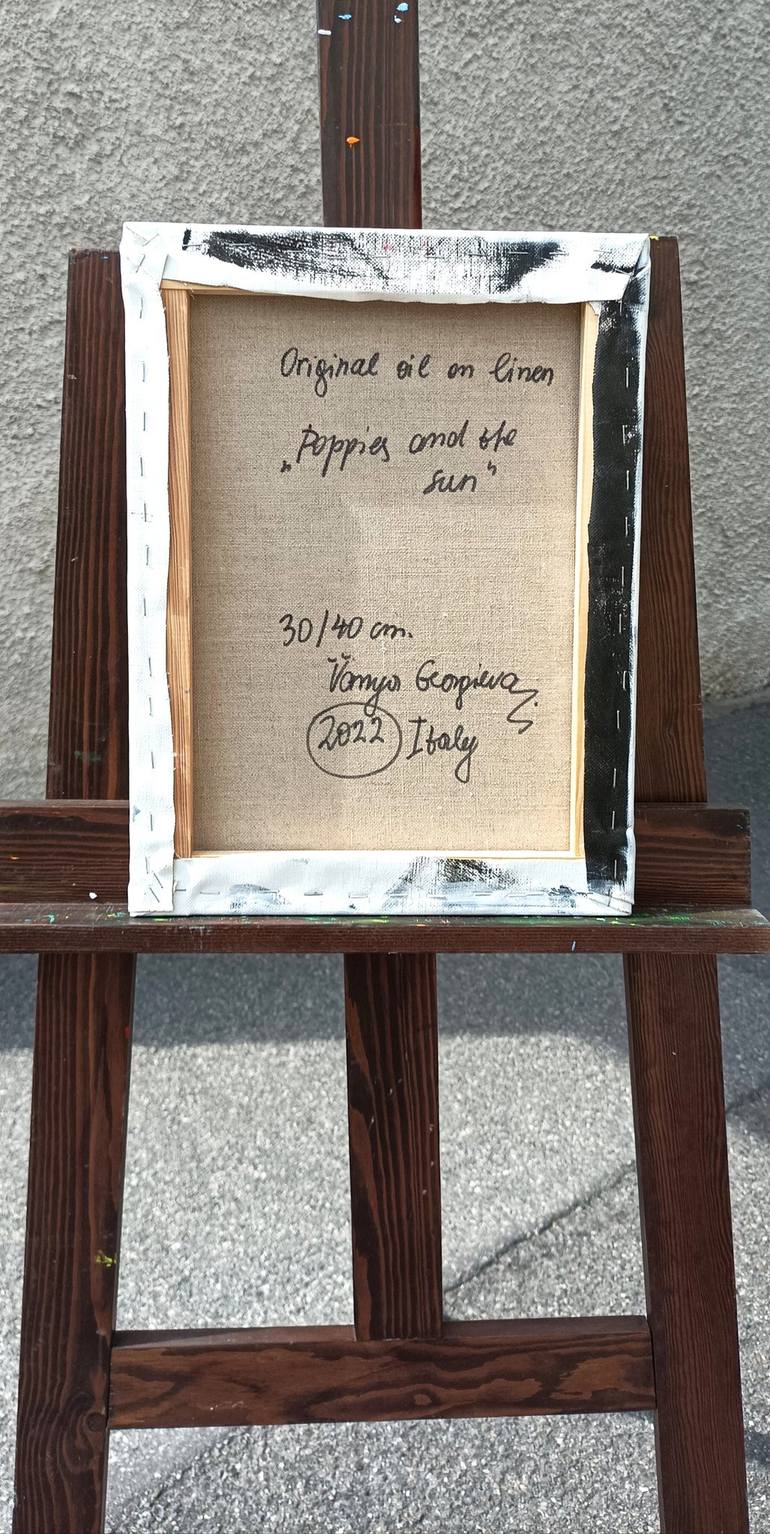 Original oil on linen
„Poppies and the
sun"
30/40 cm.
Vanya Georgieva
2022 Italy